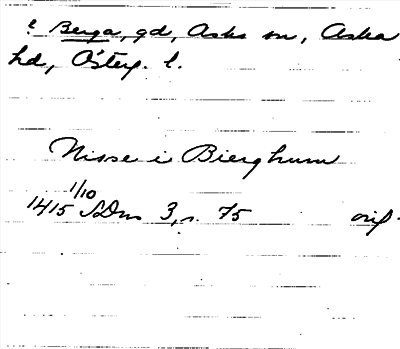 Berga, gd, Asks sn, Aska
hd, Österg. l.
Nisse i Bierghum
1/10
1415 SDns 3, s. 75 orig.